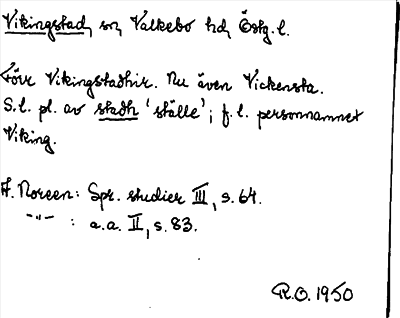 Vikingstad, sn, Valkebo hd, Östg. l.
Förr Vikingstadhir. Nu även Vickensta.
S. l. pl. av stadh 'ställe'; f. l. personnamnet
Viking.
A. Noreen: Spr. studier III, s. 64.
-"- : a.a. II, s. 83.
R.O. 1950